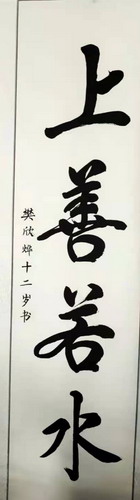 上善若水
樊欣烨十二岁书